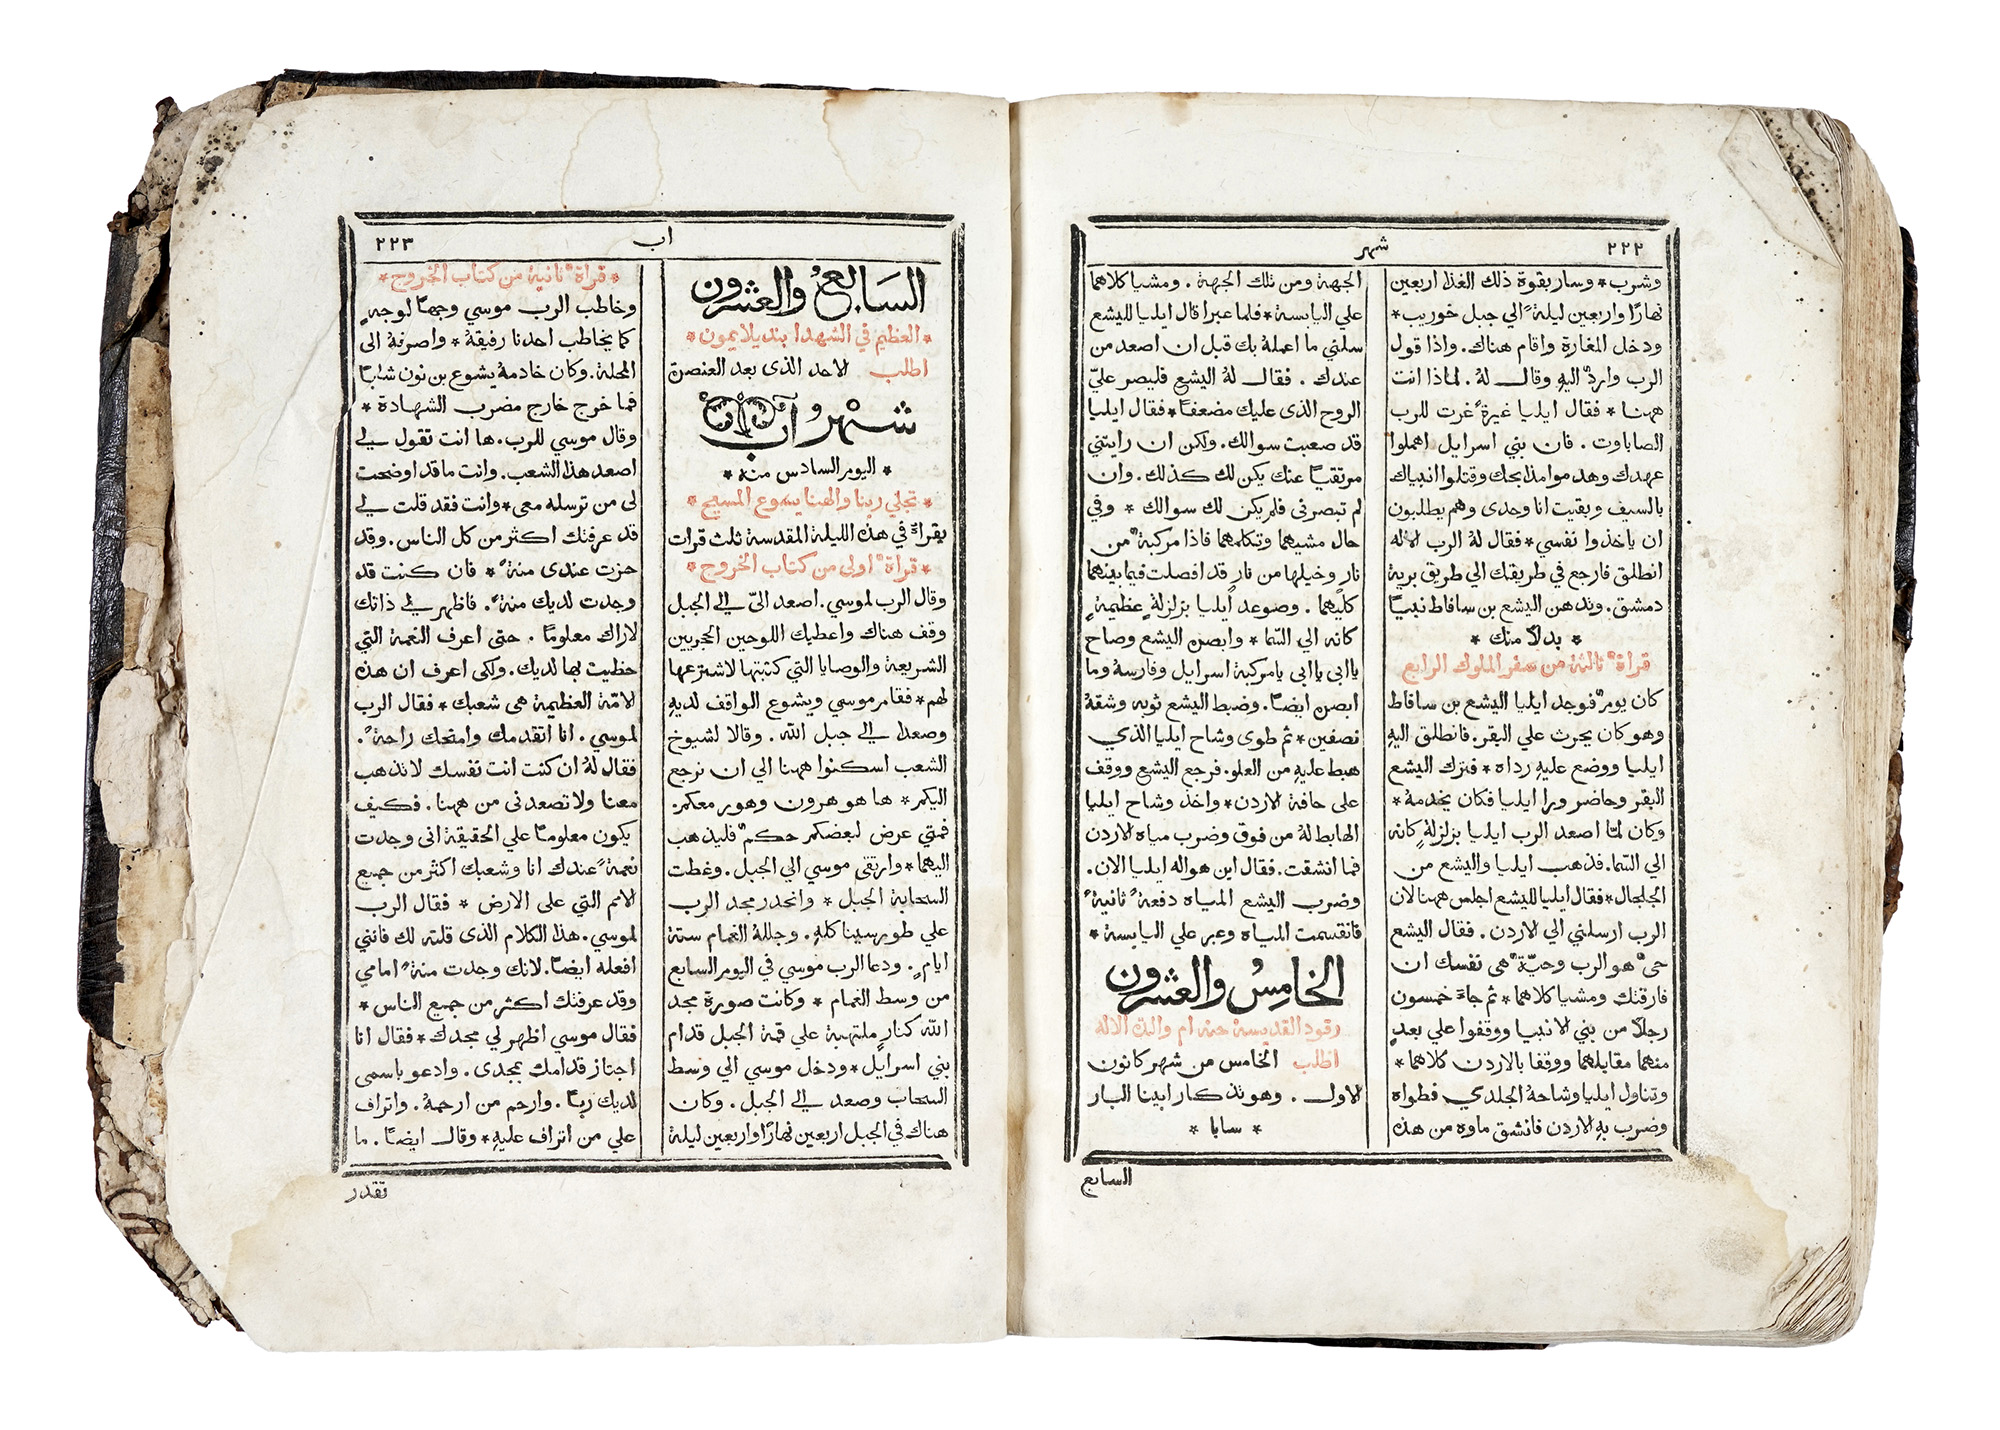 ٢٢٢
شهر
وشرب * وسار بقوة ذلك الغذا اربعين
نهارًا واربعين ليلةً الي جبل خوريب *
ودخل المغارة واقام هناك . واذا قول
الرب واردٌ اليهِ وقال لهُ . لماذا انت
ههنا * فقال ايليا غيرةً غرت للرب
الصاباوت . فان بني اسرايل اهملوا
عهدك وهدموا مذابحك وقتلوا انبياك
بالسيف وبقيت انا وحدى وهم يطلبون
ان ياخذوا نفسي * فقال لهُ الرب الاله
انطلق فارجع في طريقك الي طريق برية
دمشق . وتدهن اليشع بن سافاط نبيًا
* بدلاً منك *
قراةٌ ثالثة من سفر الملوك الرابع
كان يومٌ فوجد ايليا اليشع بن سافاط
وهو كان يحرث علي البقر . فانطلق اليهِ
ايليا ووضع عليهِ رداه * فترك اليشع
البقر وحاضر ورا ايليا فكان يخدمهُ *
وكان لمّا اصعد الرب ايليا بزلزلةٍ كانه
الي السّما . فذهب ايليا واليشع من
الجلجال * فقال ايليا لليشع اجلس ههنا لان
الرب ارسلني الي الاردن . فقال اليشع
حىٌ هو الرب وحيّةٌ هى نفسك ان
فارقتك ومشيا كلاهما * ثم جاءَ خمسون
رجلاً من بني الانبيا ووقفوا علي بعدٍ
منهما مقابلهما ووقفا بالاردن كلاهما *
وتناول ايليا وشاحهُ الجلدي فطواه
وضرب بهِ الاردن فانشق ماوه من هذه
الجهة ومن تلك الجهة . ومشيا كلاهما
علي اليابسة * فلما عبرا قال ايليا لليشع
سلني ما اعملهُ بك قبل ان اصعد من
عندك . فقال لهُ اليشع فليصر عليّ
الروح الذى عليك مضعفًا * فقال ايليا
قد صعبت سوالك . ولكن ان رايتني
مرتقيًا عنك يكن لك كذلك . وان
لم تبصرنى فلم يكن لك سوالك * وفي
حال مشيهما وتكلمهما فاذا مركبةٌ من
نار وخيلها من نارٍ قد افصلت فيما بينهما
كليهما . وصوعد ايليا بزلزلةٍ عظيمةٍ
كانه الي السّما * وابصره اليشع وصاح
ياابى ياابى يامركبة اسرايل وفارسهُ وما
ابصره ايضًا . وضبط اليشع ثوبه وشقهُ
نصفين * ثم طوى وشاح ايليا الذي
هبط عليهِ من العلو . فرجع اليشع ووقف
على حافة الاردن * واخذ وشاح ايليا
الهابط لهُ من فوق وضرب مياه الاردن
فما انشقت . فقال اين هو اله ايليا الان .
وضرب اليشع المياه دفعةً ثانيةً
فانقسمت المياه وعبر علي اليابسة *
الخامِسُ والعشرون
رقود القديسة حنه ام والدة الاله
اطلب الخامس من شهر كانون
الاول . وهو تذكار ابينا البار
* سابا *
السابع
اب
٢٢٣
السَابعُ والعشرون
* العظيم في الشهدا بنديلايمون *
اطلب الاحد الذى بعد العنصرة
شهرُ آب
* اليوم السادس منهُ *
* تجلي ربنا والهنا يسوع المسيح *
يقراءَ في هذه الليلة المقدسة ثلث قرات
* قراةٌ اولى من كتاب الخروج *
وقال الرب لموسي . اصعد اليّ الي الجبل
وقف هناك واعطيك اللوحين الحجريين
الشريعة والوصايا التي كتبتها لاشترعها
لهم * فقام موسي ويشوع الواقف لديهِ
وصعدا الي جبل الله . وقالا لشيوخ
الشعب اسكنوا ههنا الي ان نرجع
اليكم * ها هو هرون وهور معكم .
فمتي عرض لبعضكم حكمٌ فليذهب
اليهما * وارتقي موسي الي الجبل . وغطت
السحابة الجبل * وانحدر مجد الرب
علي طور سينا كلهِ . وجللهُ الغمام ستة
ايامٍ . ودعا الرب موسي في اليوم السابع
من وسط الغمام * وكانت صورة مجد
الله كنارٍ ملتهبة علي قمة الجبل قدام
بني اسرايل * ودخل موسي الي وسط
السحاب وصعد الي الجبل . وكان
هناك في الجبل اربعين نهارًا واربعين ليلة
* قراةٌ ثانية من كتاب الخروج *
وخاطب الرب موسي وجهًا لوجهٍ
كما يخاطب احدنا رفيقهُ * واصرفهُ الى
المحلة . وكان خادمهُ يشوع بن نون شابًا
فما خرج خارج مضرب الشهادة *
وقال موسي للرب . ها انت تقول لي
اصعد هذا الشعب . وانت ما قد اوضحت
لى من ترسله معى * وانت فقد قلت لي
قد عرفتك اكثر من كل الناس . وقد
حزت عندى منةً * فان كنت قد
وجدت لديك منةً . فاظهر لي ذاتك
لاراك معلومًا . حتى اعرف النعمة التي
حظيت بها لديك . ولكى اعرف ان هذه
الامّة العظيمة هى شعبك * فقال الرب
لموسي . انا اتقدمك وامنحك راحةً .
فقال لهُ ان كنت انت نفسك لا تذهب
معنا ولا تصعدنى من ههنا . فكيف
يكون معلومًا علي الحقيقة انى وجدت
نعمةً عندك انا وشعبك اكثر من جميع
الامم التي على الارض * فقال الرب
لموسي . هذا الكلام الذى قلته لك فانني
افعله ايضًا . لانك وجدت منةً امامي
وقد عرفتك اكثر من جميع الناس *
فقال موسي اظهر لي مجدك * فقال انا
اجتاز قدامك بمجدى . وادعو باسمى
لديك ربًا . وارحم من ارحمهُ . واتراف
علي من اتراف عليهِ * وقال ايضًا . ما
تقدر